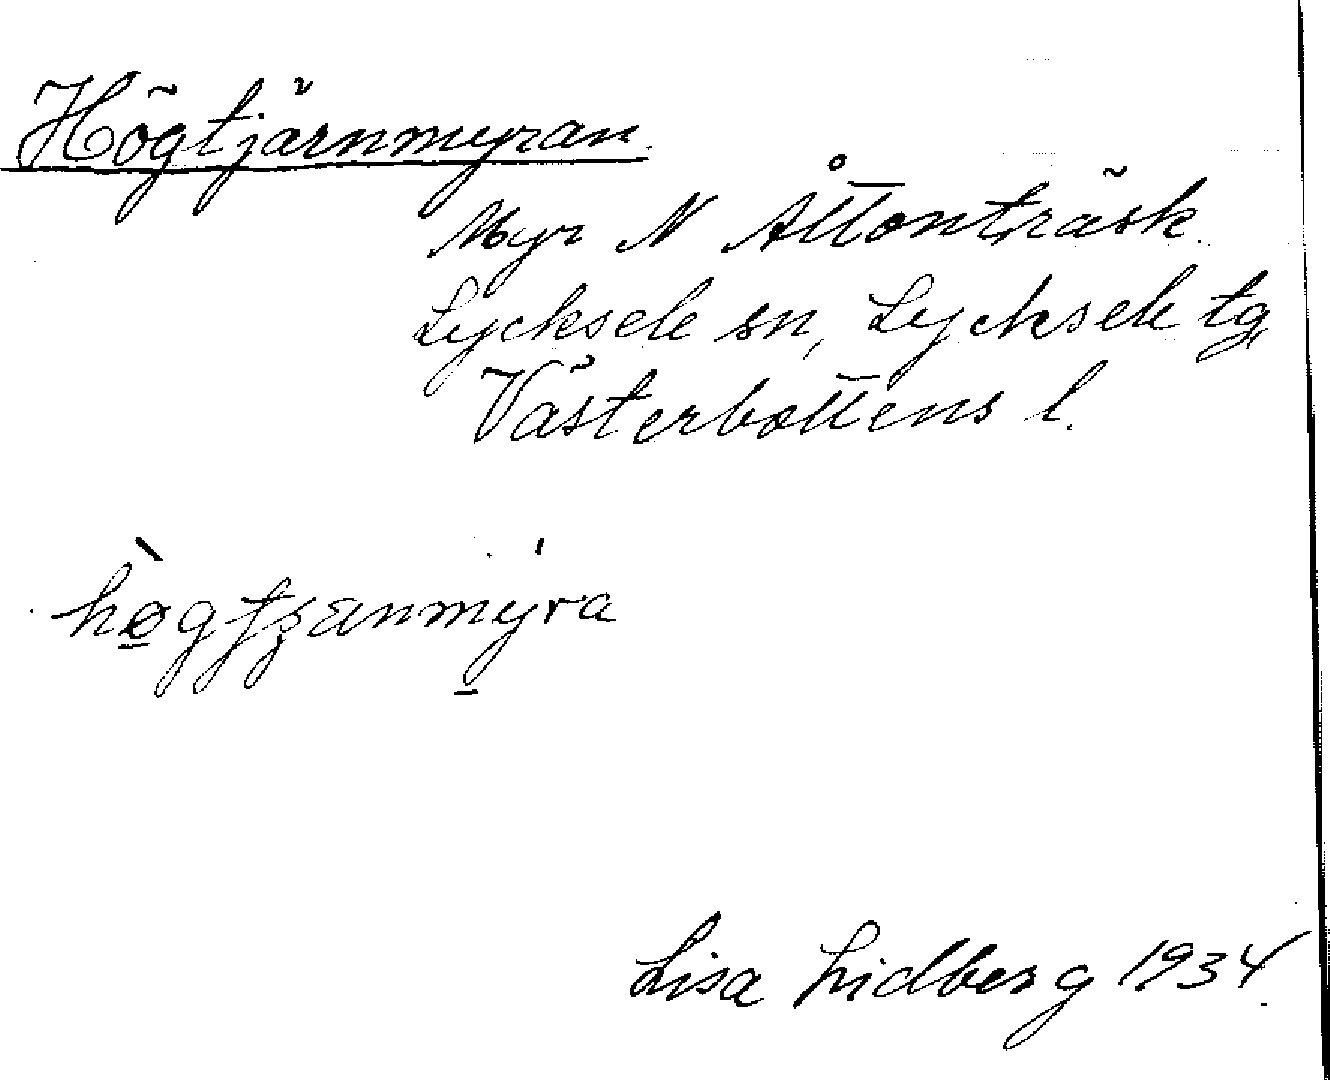 Högtjärnmyran.
Myr N Åttonträsk.
Lycksele sn, Lycksele tg
Västerbottens l.
Lisa Lidberg 1934.